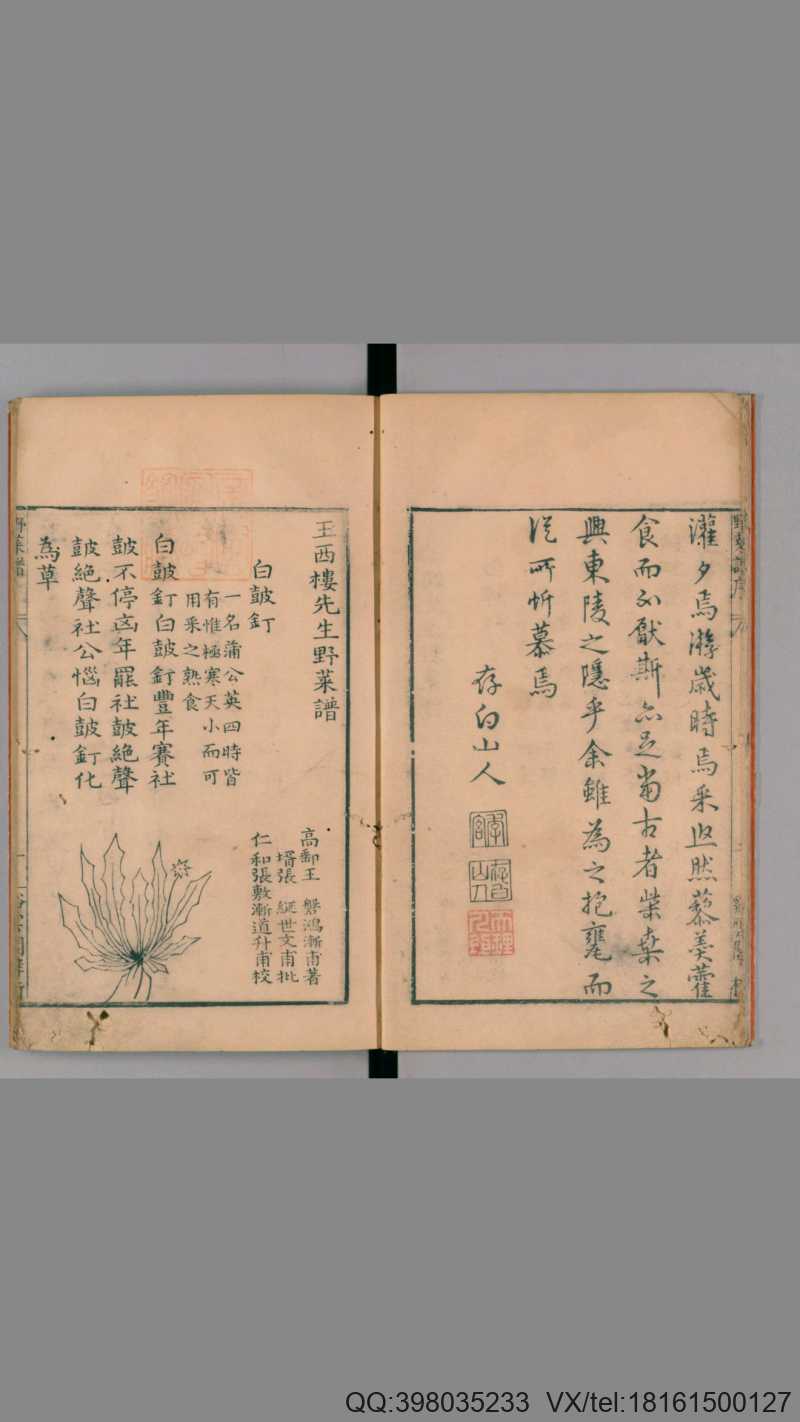 灌夕焉游歲時焉采思然藜羹藿
食而不厭斯亦足當古者柴桑之
興東陵之隱乎余雖為之抱甕而
從所忻慕焉
存白山人
王西樓先生野菜譜
高郵王磐鴻漸甫著
壻張綖世文甫批
仁和張敷漸道升甫校
白皷釘
一名蒲公英四時皆
有惟極寒天小而可
用采之熟食
白皷釘白皷釘豐年賽社
皷不停凶年罷社皷絕聲
皷絕聲社公惱白皷釘化
為草
野菜譜
QQ:398035233 VX/tel:18161500127